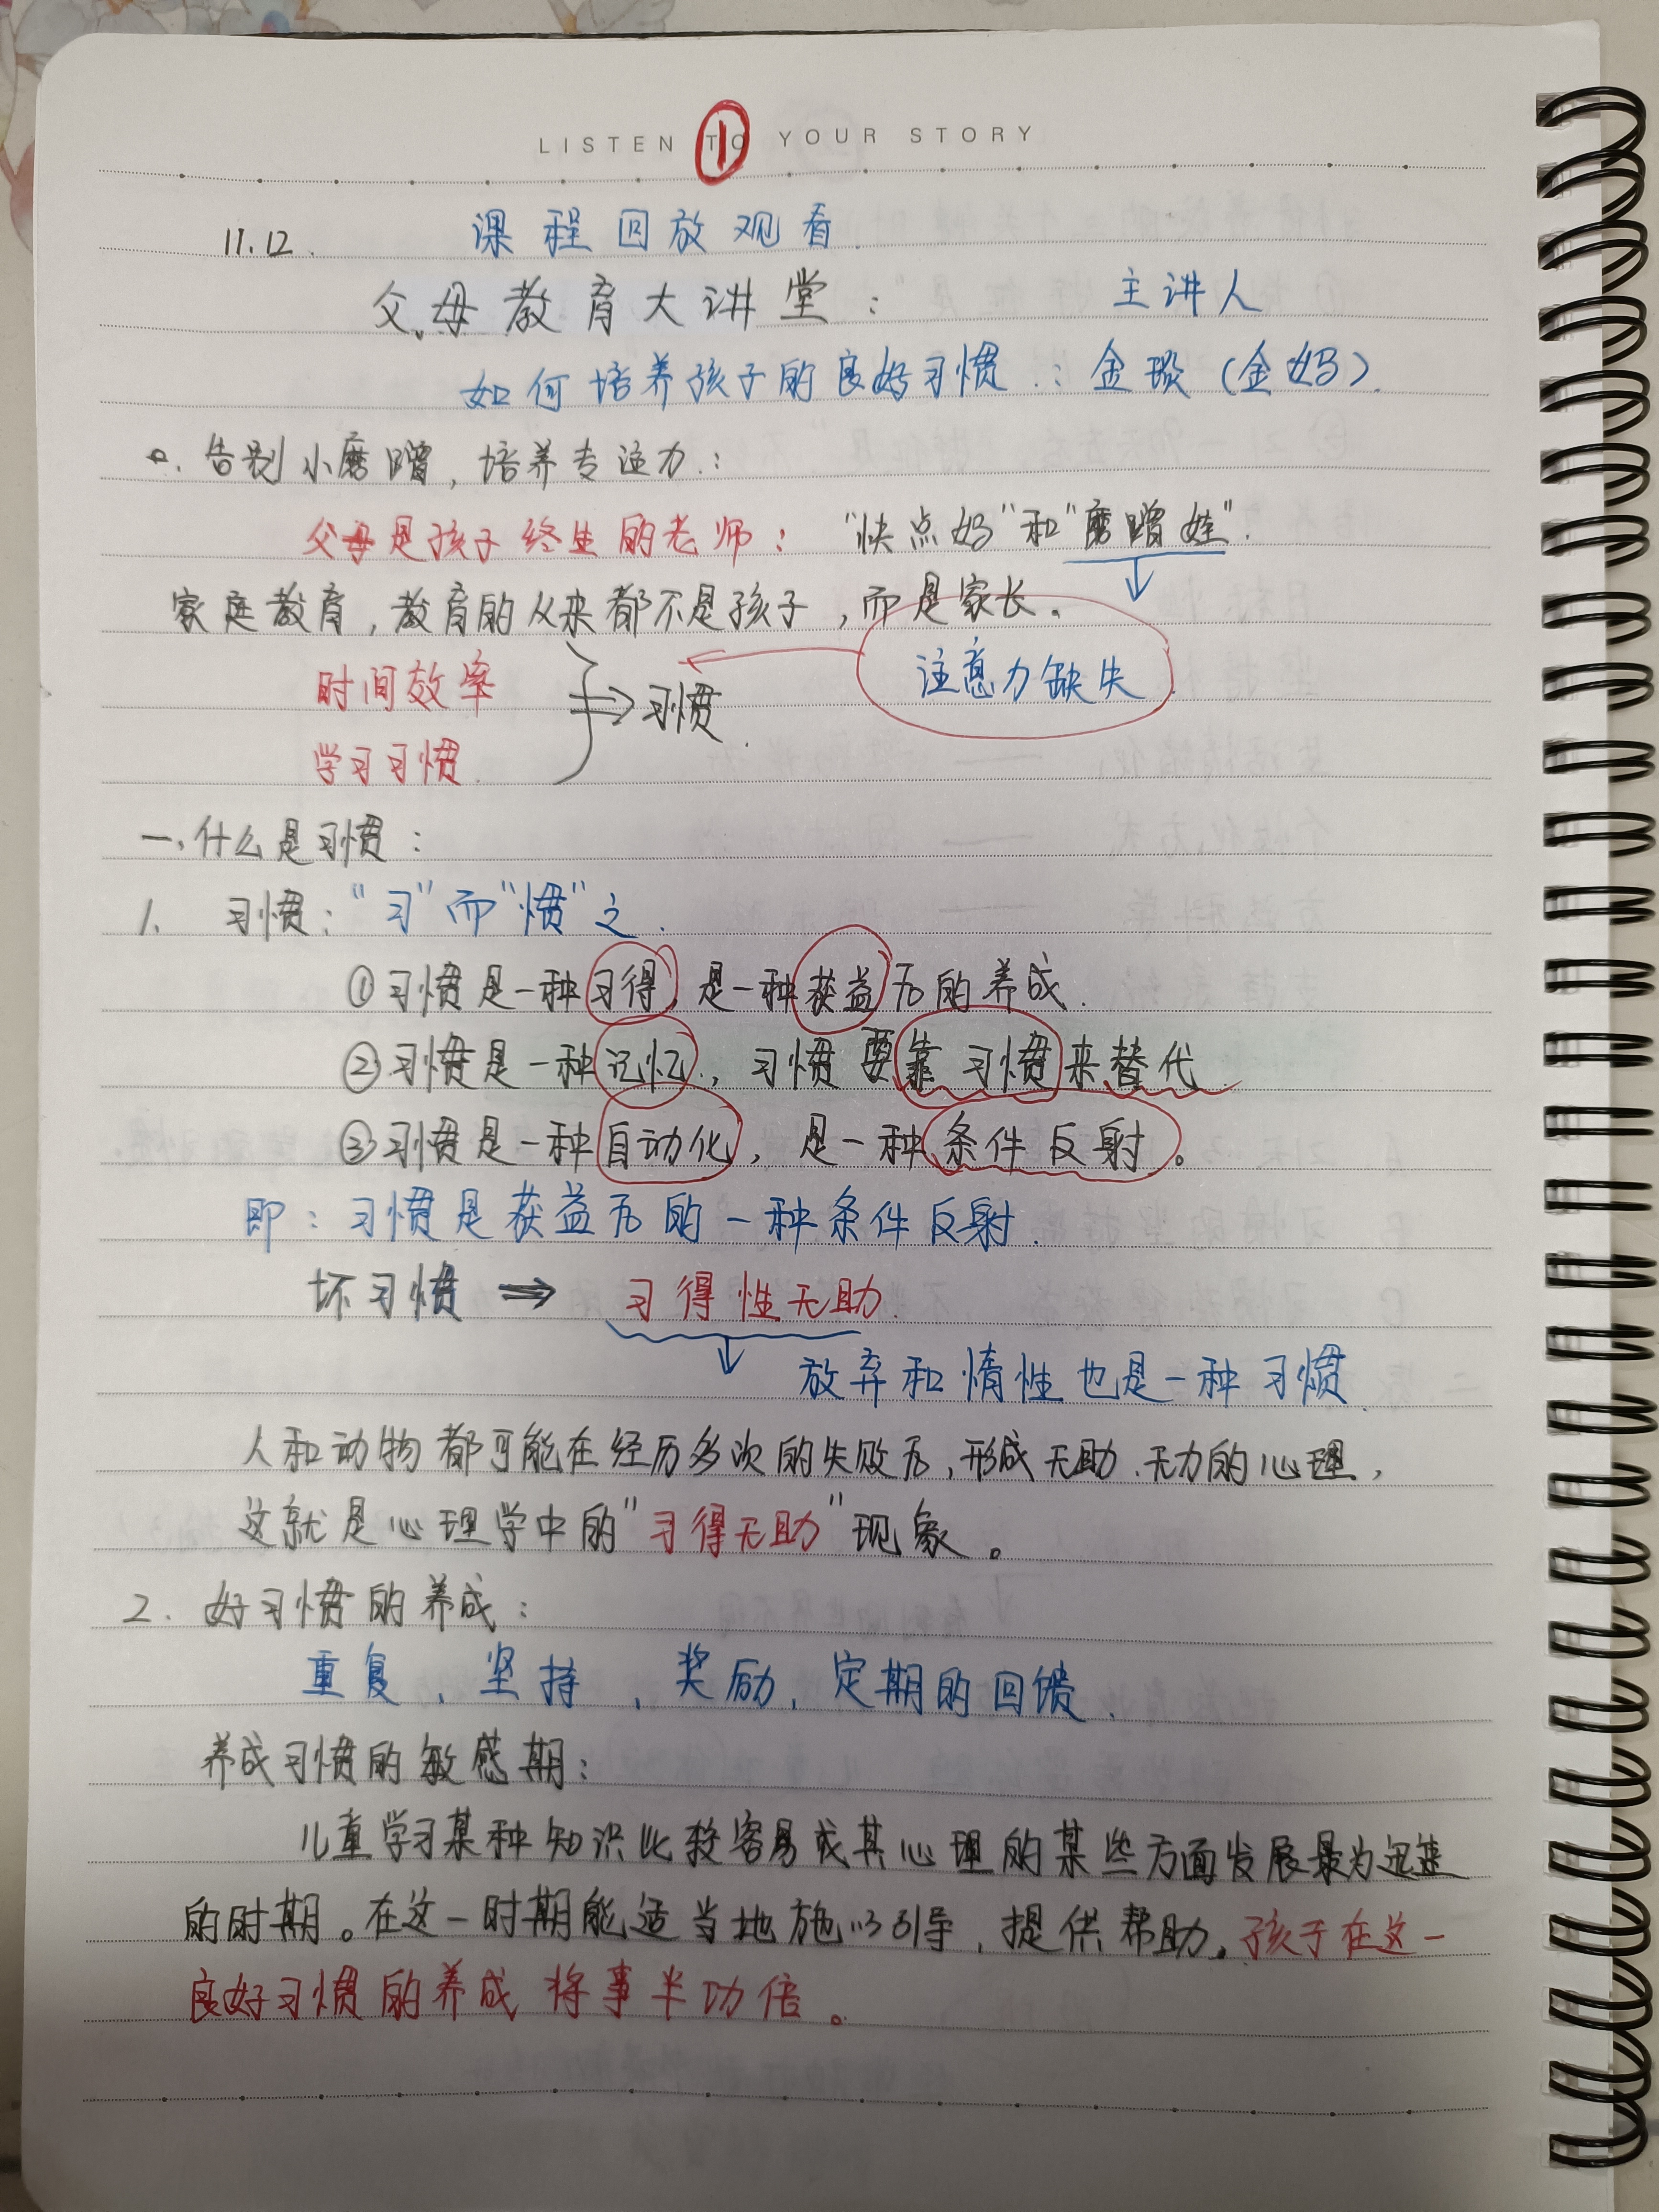 LISTEN TO YOUR STORY
①
11.12. 课程回放观看.
父母教育大讲堂： 主讲人
如何培养孩子的良好习惯：金璇（金妈）.
告别小磨蹭，培养专注力：
父母是孩子终生的老师： "快点妈"和"磨蹭娃".
家庭教育，教育的从来都不是孩子，而是家长。
时间效率
习惯.
注意力缺失
学习习惯.
一、什么是习惯：
1. 习惯："习"而"惯"之.
①习惯是一种习得，是一种获益后的养成.
②习惯是一种记忆，习惯要靠习惯来替代.
③习惯是一种自动化，是一种条件反射。
即：习惯是获益后的一种条件反射.
坏习惯 ⇒ 习得性无助.
↓ 放弃和惰性也是一种习惯.
人和动物都可能在经历多次的失败后，形成无助、无力的心理，
这就是心理学中的"习得无助"现象。
2. 好习惯的养成：
重复、坚持、奖励、定期的回馈.
养成习惯的敏感期：
儿童学习某种知识比较容易或其心理的某些方面发展最为迅速
的时期。在这一时期能适当地施以引导，提供帮助。孩子在这一
良好习惯的养成将事半功倍。